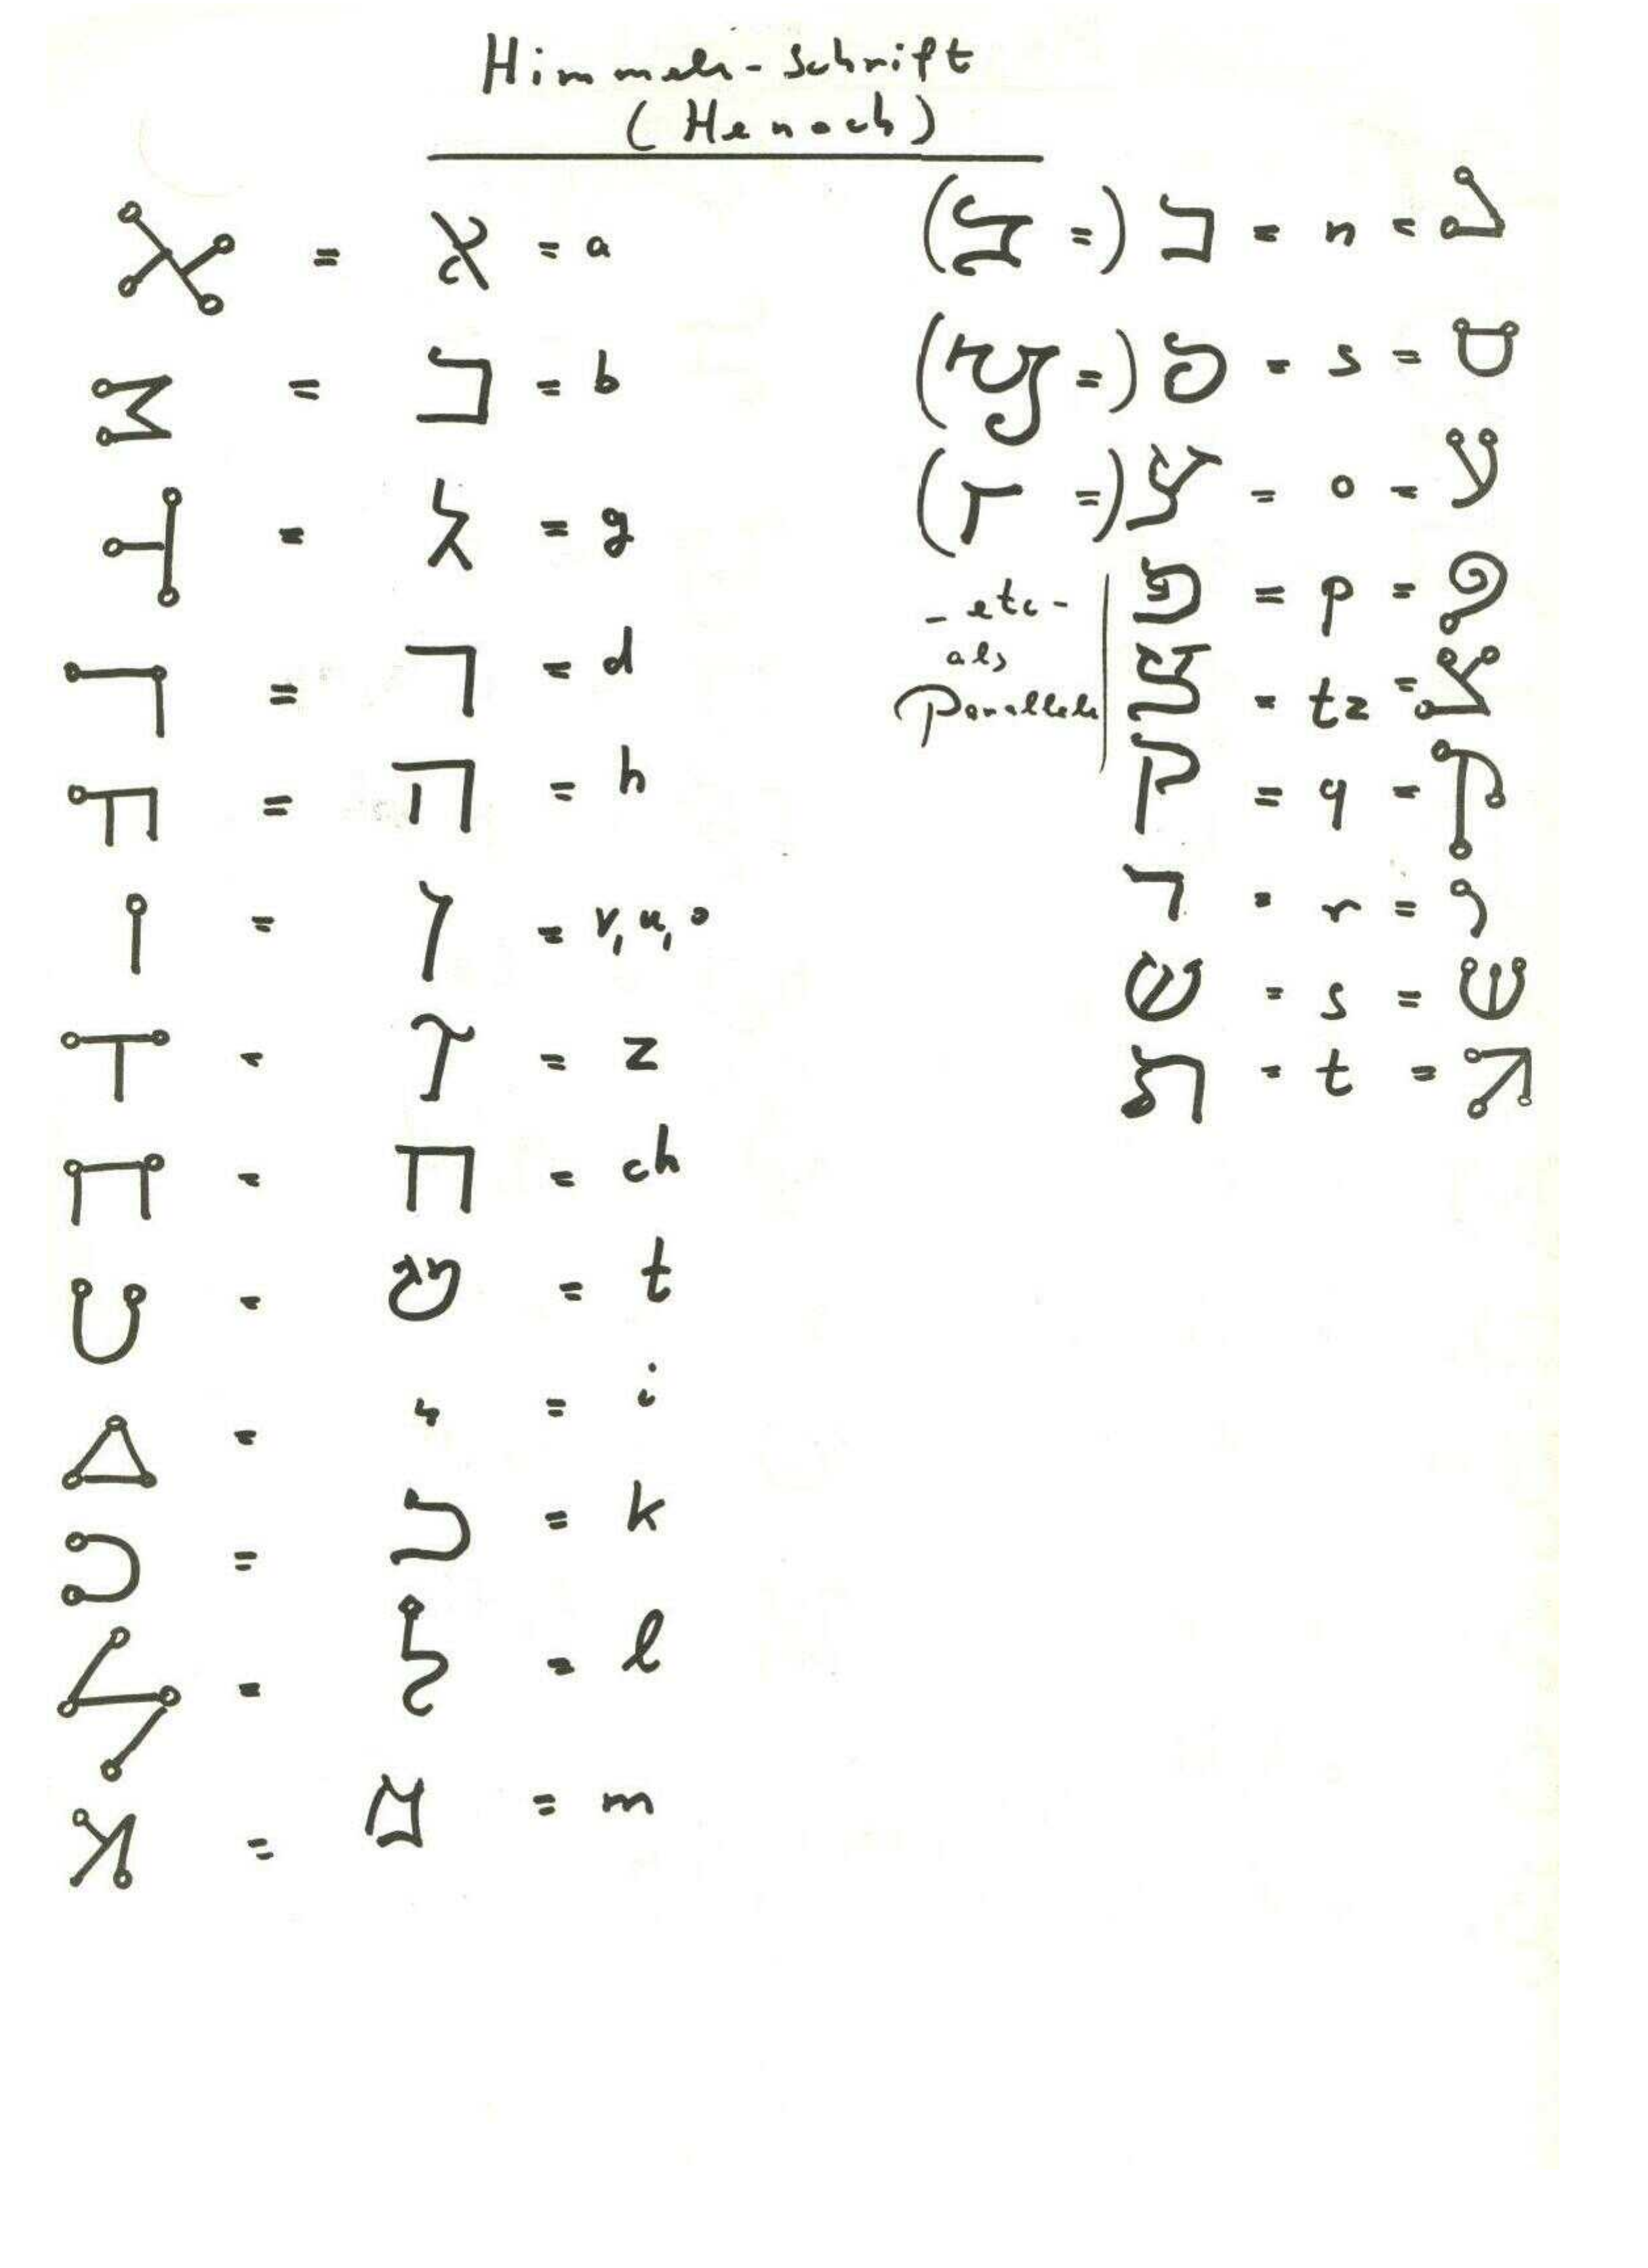 Himmels-Schrift
(Henoch)
= א = a
= ב = b
= ג = g
= ד = d
= ה = h
= ו = v, u, o
= ז = z
= ח = ch
= ט = t
= י = i
= כ = k
= ל = l
= מ = m
( =) נ = n =
( =) ס = s =
( =) ע = o =
- etc -
als
Parallele
פ = p =
צ = tz =
ק = q =
ר = r =
ש = s =
ת = t =